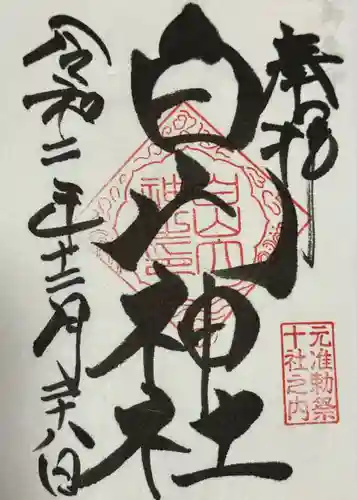 奉拝
白山神社
令和二年十二月二十八日
元准勅祭
十社之内